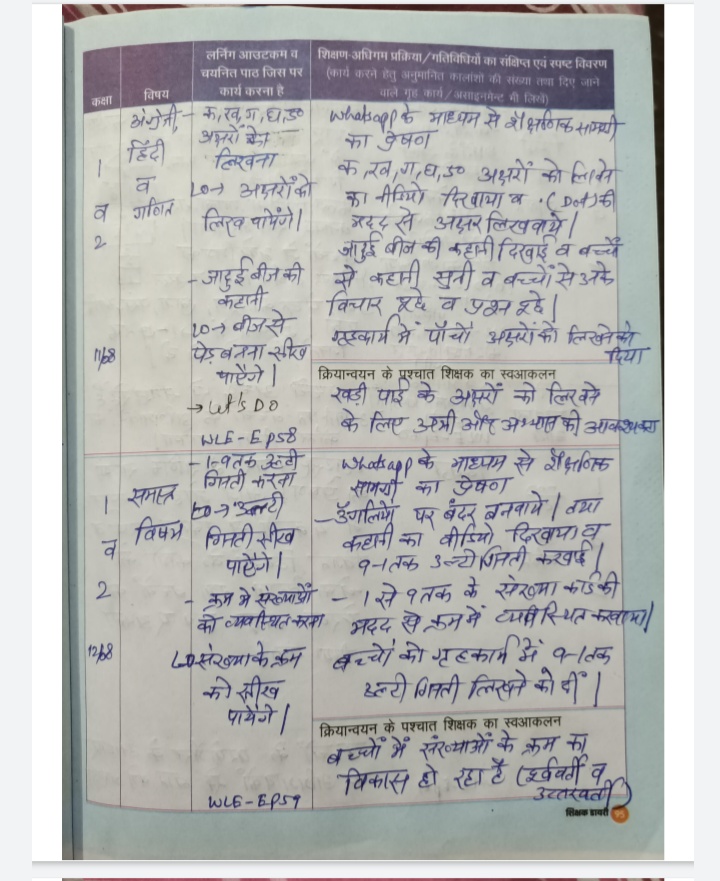 कक्षा
विषय
लर्निंग आउटकम व
चयनित पाठ जिस पर
कार्य करना है
शिक्षण-अधिगम प्रक्रिया/गतिविधियों का संक्षिप्त एवं स्पष्ट विवरण
(कार्य करने हेतु अनुमानित कालांशों की संख्या तथा दिए जाने
वाले गृह कार्य/असाइनमेंट भी लिखें)
1
व
2
11/08
अंग्रेजी,
हिंदी
व
गणित
- क,ख,ग,घ,ङ
अक्षरों को
लिखना
LO→ अक्षरों को
लिख पायेंगे।
- जादुई बीज की
कहानी
LO→ बीज से
पेड़ बनना सीख
पाएँगे।
→ Let's DO
WLE-EP58
Whatsapp के माध्यम से शैक्षणिक सामग्री
का प्रेषण
क,ख,ग,घ,ङ अक्षरों को लिखने
का वीडियो दिखाया व .(Dot) की
मदद से अक्षर लिखवाये।
जादुई बीज की कहानी दिखाई व बच्चों
से कहानी सुनी व बच्चों से उनके
विचार पूछे व प्रश्न पूछे।
गृहकार्य में पाँचों अक्षरों को लिखने को
दिया
क्रियान्वयन के पश्चात शिक्षक का स्वआकलन
खड़ी पाई के अक्षरों को लिखने
के लिए अभी और अभ्यास की आवश्यकता
1
व
2
12/08
समस्त
विषय
- 1-9 तक उल्टी
गिनती करना
LO→ उल्टी
गिनती सीख
पाएँगे।
- क्रम में संख्याओं
को व्यवस्थित करना
LO संख्या के क्रम
को सीख
पायेंगे।
WLE-EP59
Whatsapp के माध्यम से शैक्षणिक
सामग्री का प्रेषण
- उँगलियों पर बंदर बनवाये। तथा
कहानी का वीडियो दिखाया व
9-1 तक उल्टी गिनती करवाई।
- 1 से 9 तक के संख्या कार्ड की
मदद से क्रम में व्यवस्थित करवाया।
बच्चों को गृहकार्य में 9-1 तक
उल्टी गिनती लिखने को दी।
क्रियान्वयन के पश्चात शिक्षक का स्वआकलन
बच्चों में संख्याओं के क्रम का
विकास हो रहा है (पूर्ववर्ती व
उत्तरवर्ती)
शिक्षक डायरी 95